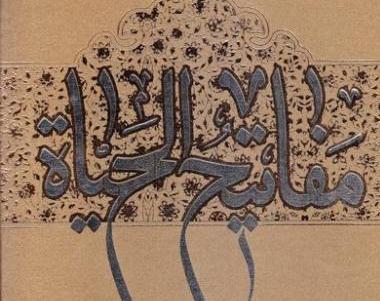 مفاتيح الحياة